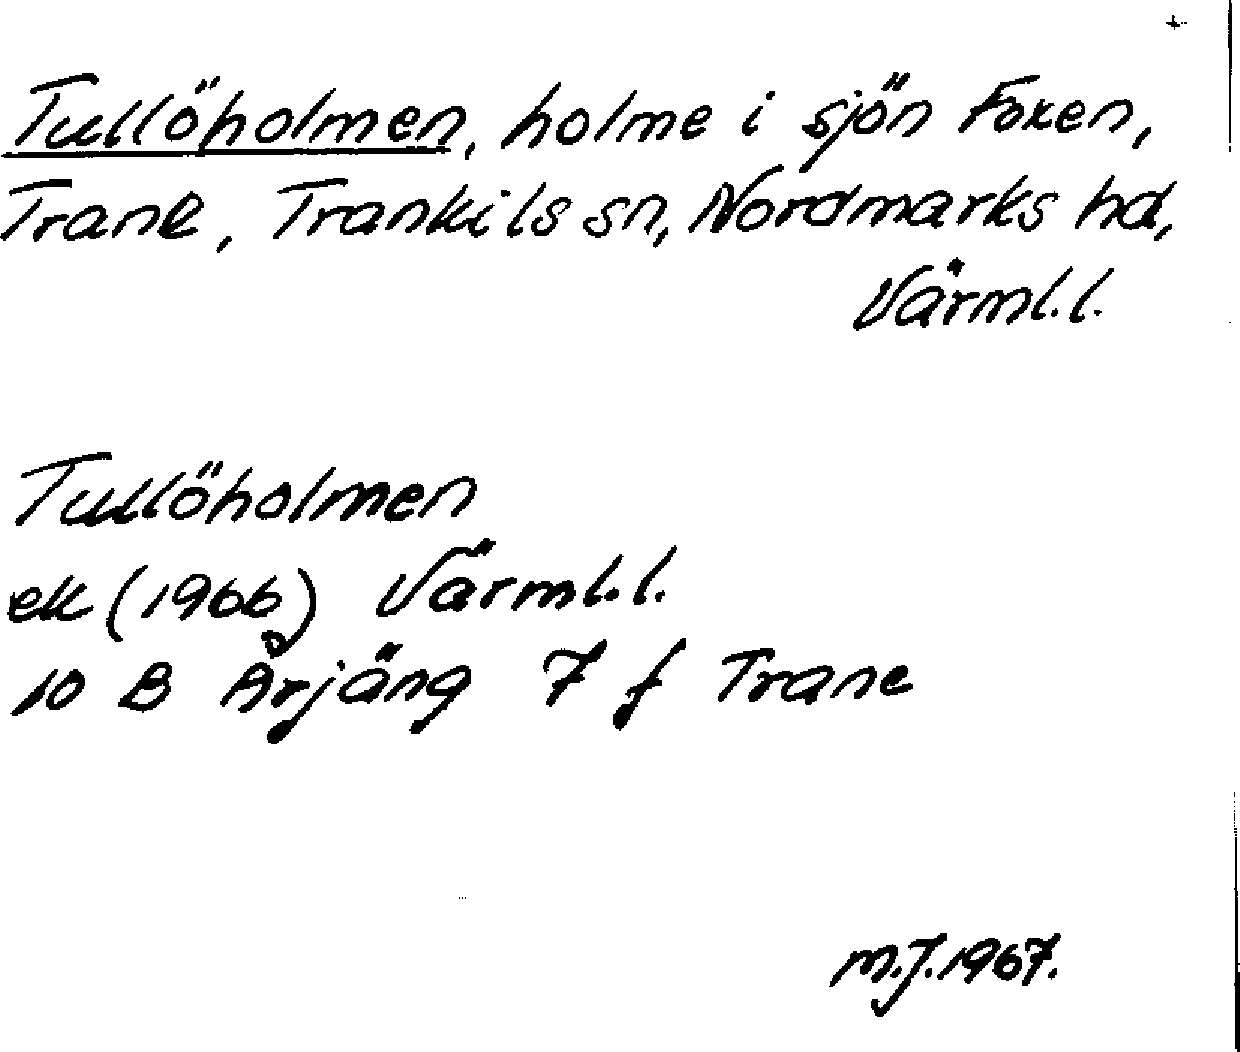 Tullöholmen, holme i sjön Foxen,
Trane, Trankils sn, Nordmarks hd,
Värml.l.
Tullöholmen
ek (1966) Värml.l.
10 B Årjäng 7 f Trane
M.J. 1967.